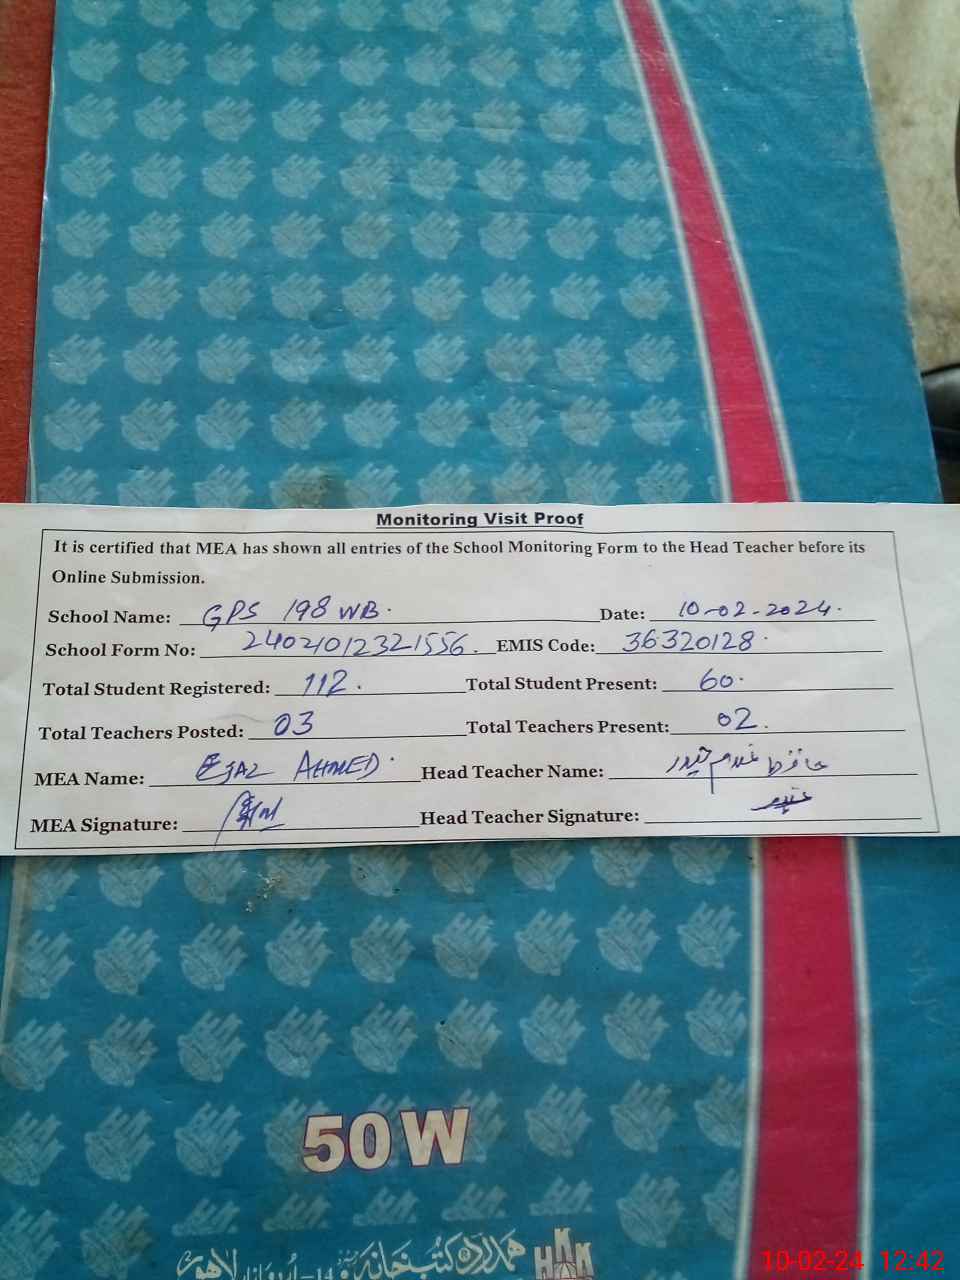 Monitoring Visit Proof
It is certified that MEA has shown all entries of the School Monitoring Form to the Head Teacher before its
Online Submission.
School Name: GPS 198 WB. Date: 10-02-2024.
School Form No: 2402101232 1556. EMIS Code: 36320128
Total Student Registered: 112. Total Student Present: 60.
Total Teachers Posted: 03 Total Teachers Present: 02.
MEA Name: EJAZ AHMED. Head Teacher Name: حافظ غلام حیدر
MEA Signature: Head Teacher Signature:
50 W
ہمدرد کتب خانہ 14-اردو بازار لاہور HKK
10-02-24 12:42